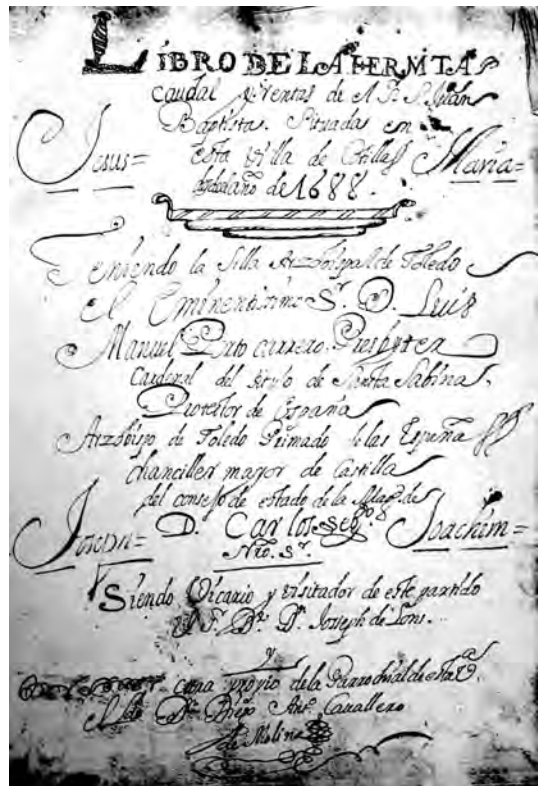 LIBRO DE LA HERMITA
caudal y Rentas de S. Juan
Baptista. Situadas en
Jesus= esta Villa de Cotillas Maria=
año de 1688.
Teniendo la Silla Arzobispal de Toledo
El Eminentisimo Sr. D. Luis
Manuel Porto carrero. Presbytero
Cardenal del titulo de Santa Sabina,
Protector de España
Arzobispo de Toledo Primado de las Españas
chanciller mayor de Castilla
del consejo de estado de la Magd. de
Joseph= D. Carlos segdo. Joachim=
Nro. Sr.
Siendo Vicario y visitador de este partido
Dr. D. Joseph de
y
cura propio dela Parrochial de esta Va.
Ldo. Dn. Diego Anto. Cavallero
de Molina